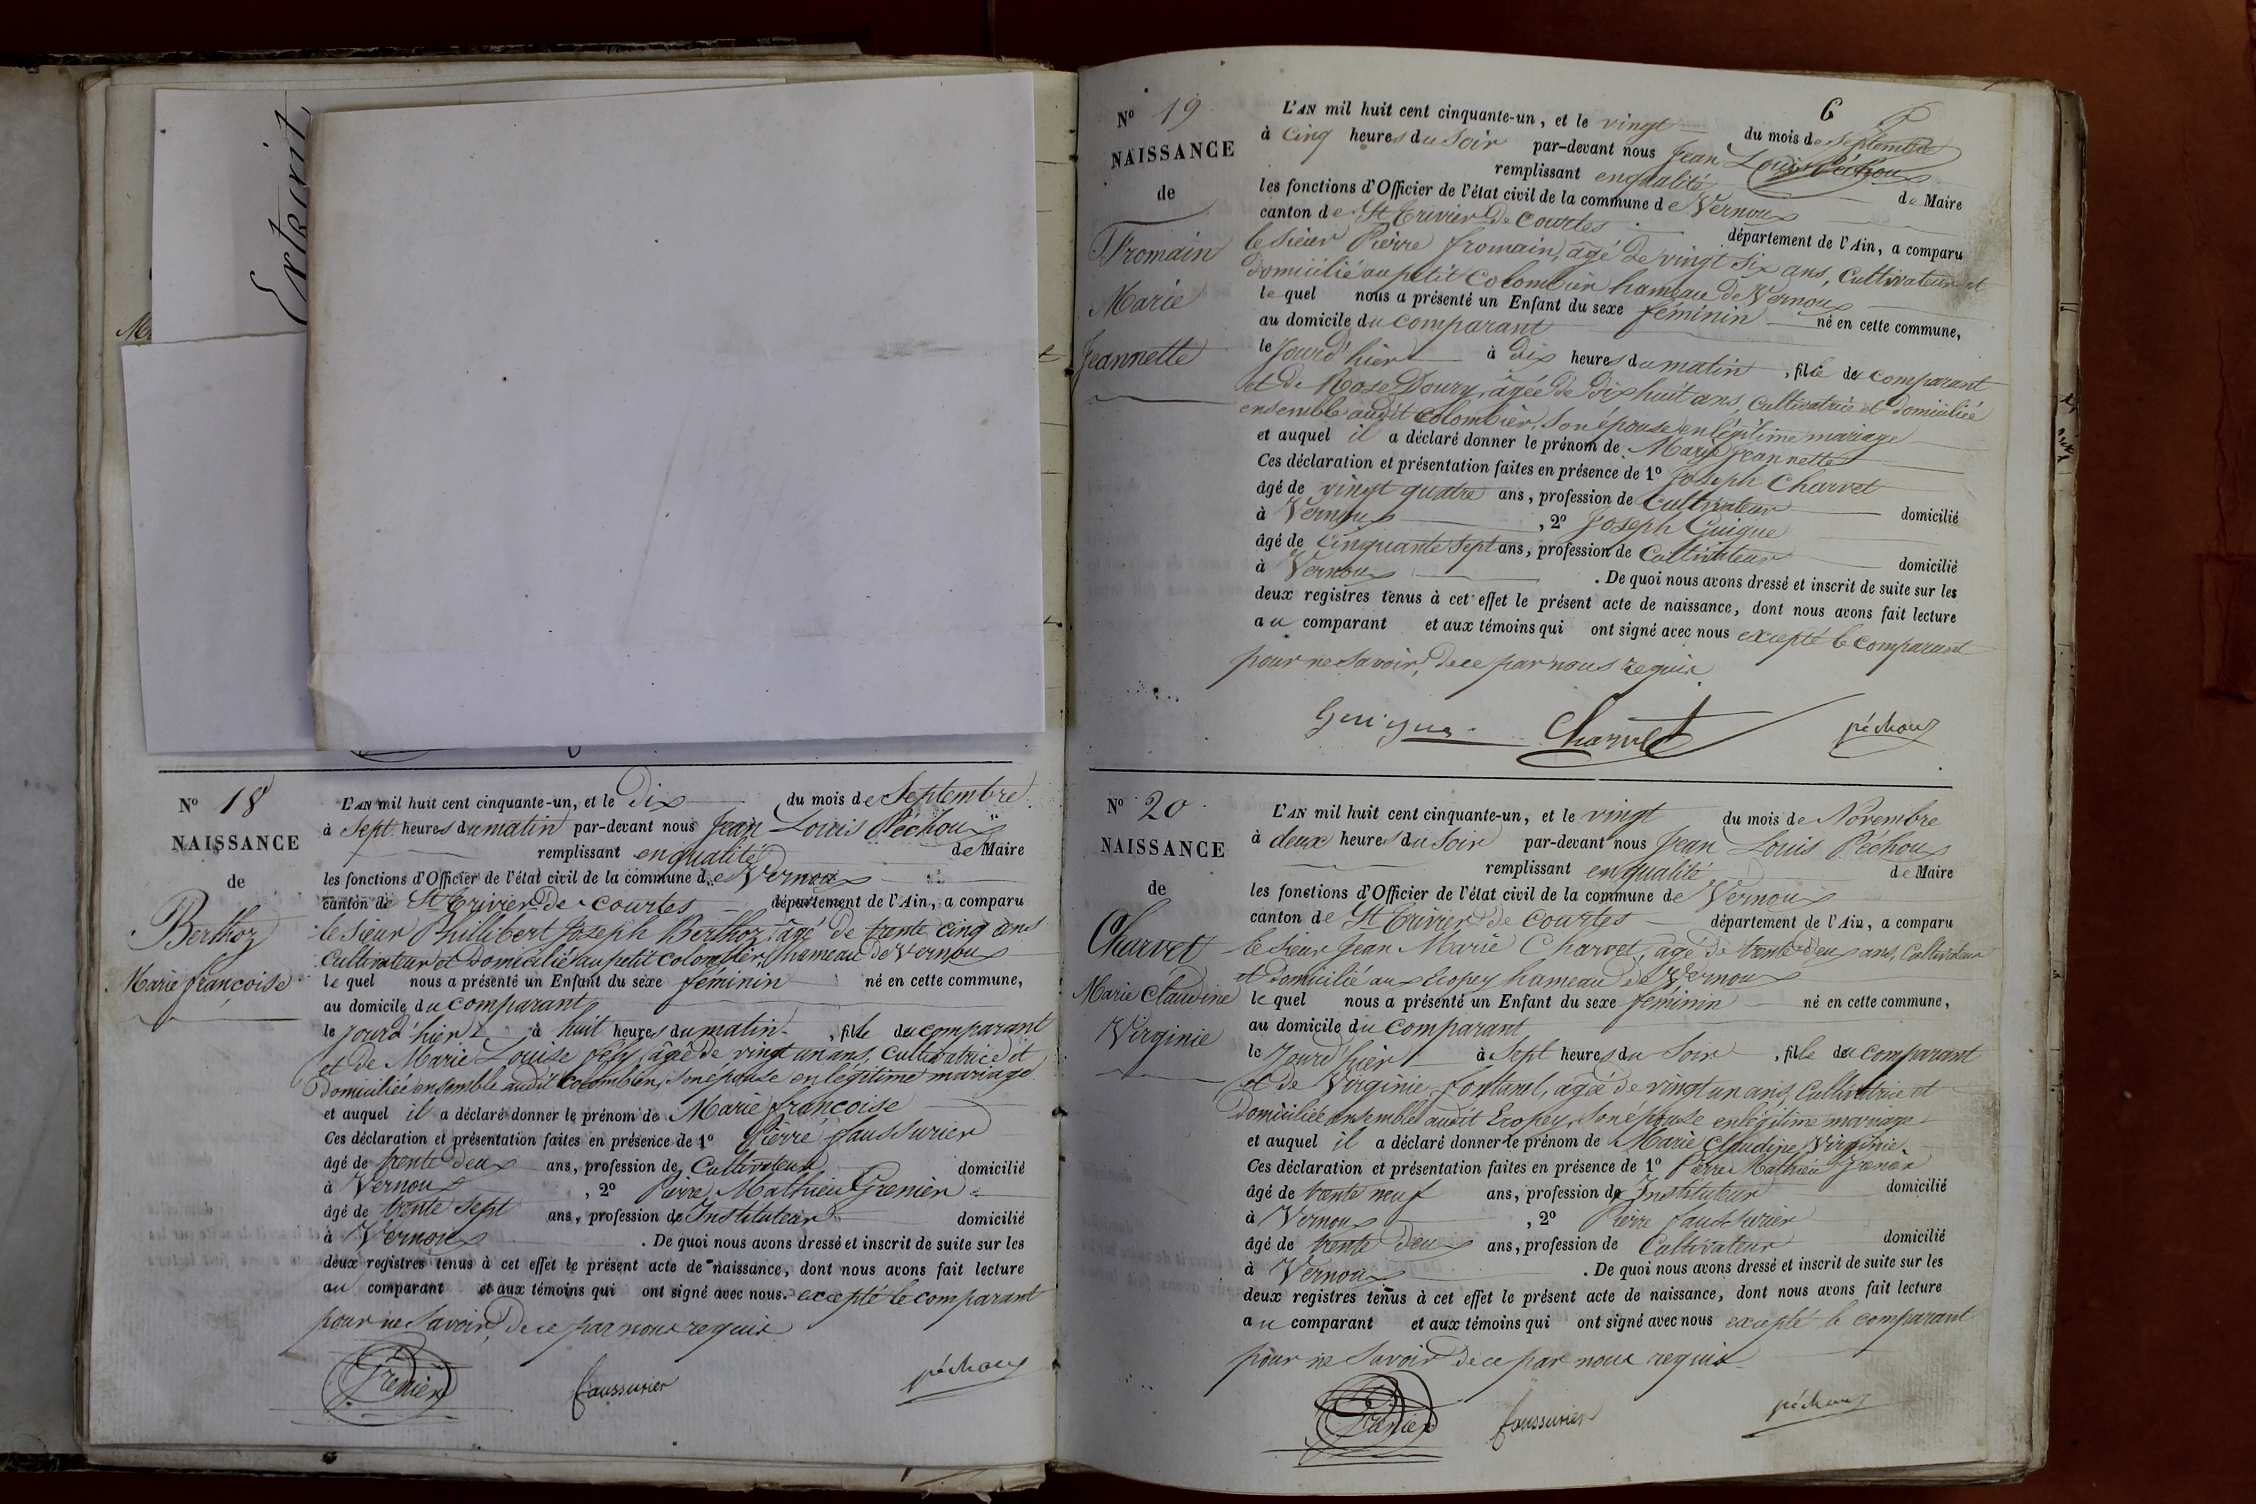 Extrait
N° 18
NAISSANCE
de
Berthoz
Marie françoise
L'AN mil huit cent cinquante-un, et le Dix du mois de Septembre
à Sept heures du matin par-devant nous Jean Louis Péchoux
remplissant en qualité de Maire
les fonctions d'Officier de l'état civil de la commune de Vernoux
canton de St Trivier De Courtes département de l'Ain, a comparu
le Sieur Phillibert Joseph Berthoz, âgé de trente cinq ans
Cultivateur et domicilié au petit colombier, hameau de Vernoux
le quel nous a présenté un Enfant du sexe féminin né en cette commune,
au domicile du comparant
le jourd'hier à huit heures du matin, fille du comparant
et de Marie Louise, âgée de vingt un ans, Cultivatrice et
Domiciliée ensemble audit colombier, son épouse en légitime mariage
et auquel il a déclaré donner le prénom de Marie françoise
Ces déclaration et présentation faites en présence de 1° Pierre faussurier
âgé de trente deux ans, profession de Cultivateur domicilié
à Vernoux, 2° Pierre Mathieu Grenier
âgé de trente sept ans, profession de Instituteur domicilié
à Vernoux. De quoi nous avons dressé et inscrit de suite sur les
deux registres tenus à cet effet le présent acte de naissance, dont nous avons fait lecture
au comparant et aux témoins qui ont signé avec nous excepté le comparant
pour ne Savoir, De ce par nous requis
Grenier faussurier péchoux
6
N° 19
NAISSANCE
de
Fromain
Marie
Jeannette
L'AN mil huit cent cinquante-un, et le vingt du mois de Septembre
à Cinq heures du Soir par-devant nous Jean Louis Péchoux
remplissant en qualité de Maire
les fonctions d'Officier de l'état civil de la commune de Vernoux
canton de St Trivier De Courtes département de l'Ain, a comparu
le Sieur Pierre fromain, âgé de vingt six ans, Cultivateur et
Domicilié au petit Colombier hameau de Vernoux
le quel nous a présenté un Enfant du sexe féminin né en cette commune,
au domicile du comparant
le Jourd'hier à Dix heures du matin, fille du comparant
et de Rose Doury, âgée de Dix huit ans, Cultivatrice et domiciliée
ensemble audit Colombier, son épouse en légitime mariage
et auquel il a déclaré donner le prénom de Marie Jeannette
Ces déclaration et présentation faites en présence de 1° Joseph Charvet
âgé de vingt quatre ans, profession de Cultivateur domicilié
à Vernoux, 2° Joseph Guigue
âgé de Cinquante Sept ans, profession de Cultivateur domicilié
à Vernoux. De quoi nous avons dressé et inscrit de suite sur les
deux registres tenus à cet effet le présent acte de naissance, dont nous avons fait lecture
au comparant et aux témoins qui ont signé avec nous excepté le Comparant
pour ne Savoir, De ce par nous requis
Guigue Charvet péchoux
N° 20
NAISSANCE
de
Charvet
Marie Claudine
Virginie
L'AN mil huit cent cinquante-un, et le vingt du mois de Novembre
à deux heures du Soir par-devant nous Jean Louis Péchoux
remplissant en qualité de Maire
les fonctions d'Officier de l'état civil de la commune de Vernoux
canton de St Trivier De Courtes département de l'Ain, a comparu
le Sieur Jean Marie Charvet, âgé de trente deux ans, Cultivateur
et domicilié aux Ecopey hameau de Vernoux
le quel nous a présenté un Enfant du sexe féminin né en cette commune,
au domicile du comparant
le Jourd'hier à Sept heures du Soir, fille du comparant
et de Virginie, âgée de vingt un ans, Cultivatrice et
Domiciliée ensemble audit Ecopey, son épouse en légitime mariage
et auquel il a déclaré donner le prénom de Marie Claudine Virginie
Ces déclaration et présentation faites en présence de 1° Pierre Mathieu Grenier
âgé de trente neuf ans, profession de Instituteur domicilié
à Vernoux, 2° Pierre faussurier
âgé de trente Deux ans, profession de Cultivateur domicilié
à Vernoux. De quoi nous avons dressé et inscrit de suite sur les
deux registres tenus à cet effet le présent acte de naissance, dont nous avons fait lecture
au comparant et aux témoins qui ont signé avec nous excepté le comparant
pour ne Savoir De ce par nous requis
Grenier faussurier péchoux